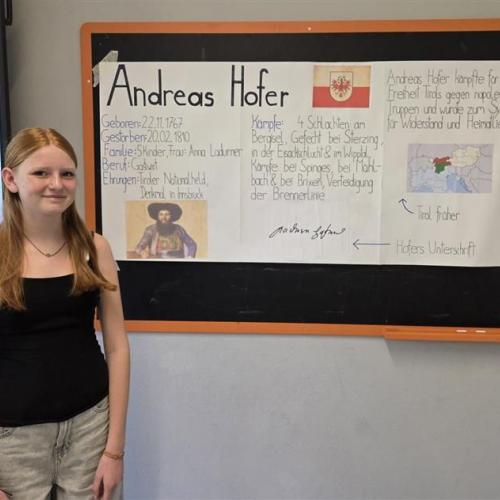 Andreas Hofer
Geboren: 22.11.1767
Gestorben: 20.02.1810
Familie: 5 Kinder, Frau: Anna Ladurner
Beruf: Gastwirt
Ehrungen: Tiroler Nationalheld,
Denkmal in Innsbruck
Kämpfe: 4 Schlachten am
Bergisel, Gefecht bei Sterzing,
in der Eisackschlucht & im Wipptal,
Kämpfe bei Spinges, bei Mühl-
bach & bei Brixen, Verteidigung
der Brennerlinie
Andreas Hofer kämpfte für
Freiheit Tirols gegen
Truppen und wurde zum
für Widerstand und
Tirol früher
Hofers Unterschrift